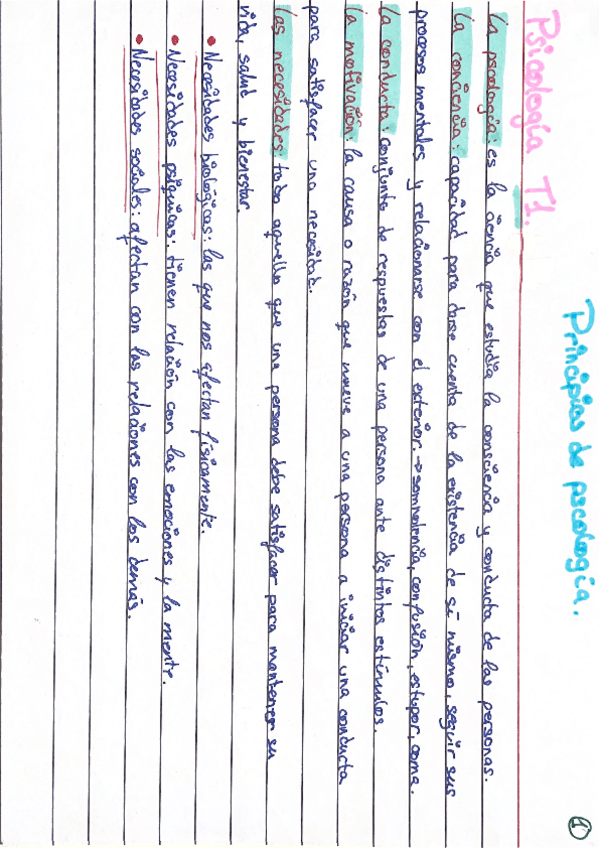 Principios de pscología.
①
Psicología T1.
La pscología: es la ciencia que estudia la consciencia y conducta de las personas.
La conciencia: capacidad para darse cuenta de la existencia de sí mismo, seguir sus
procesos mentales y relacionarse con el exterior. → somnolencia, confusión, estupor, coma.
La conducta: conjunto de respuestas de una persona ante distintos estímulos.
La motivación: la causa o razón que mueve a una persona a iniciar una conducta
para satisfacer una necesidad.
Las necesidades: todo aquello que una persona debe satisfacer para mantener su
vida, salud y bienestar.
• Necesidades biológicas: las que nos afectan físicamente.
• Necesidades psíquicas: tienen relación con las emociones y la mente.
• Necesidades sociales: afectan con las relaciones con los demás.